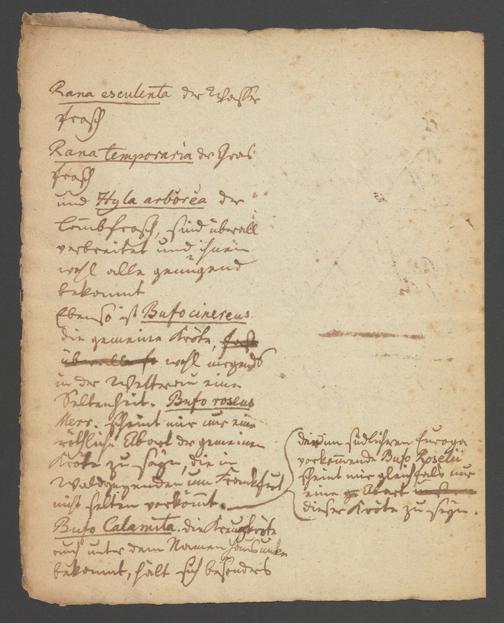 Rana esculenta der Wasser
frosch
Rana temporaria der Gras
frosch
und Hyla arborea der
Laubfrosch, sind überall
verbreitet und ihnen
wohl alle genügend
bekannt
Ebenso ist Bufo cinereus
die gemeine Kröte, fast
überall wohl nirgends
in der Wetterau eine
Seltenheit. Bufo roseus
Merr. scheint mir nur eine
röthliche Abart der gemeinen
Kröte zu seyn, die in
Waldgegenden um Frankfurt
nicht selten vorkömmt.
Bufo Calamita. die Kreuzkröte
auch unter dem Namen Hausunke
bekannt, hält sich besonders
die im südlichen Europa
vorkommende Bufo Roselii
scheint mir gleichfals nur
eine Abart
dieser Kröte zu seyn.